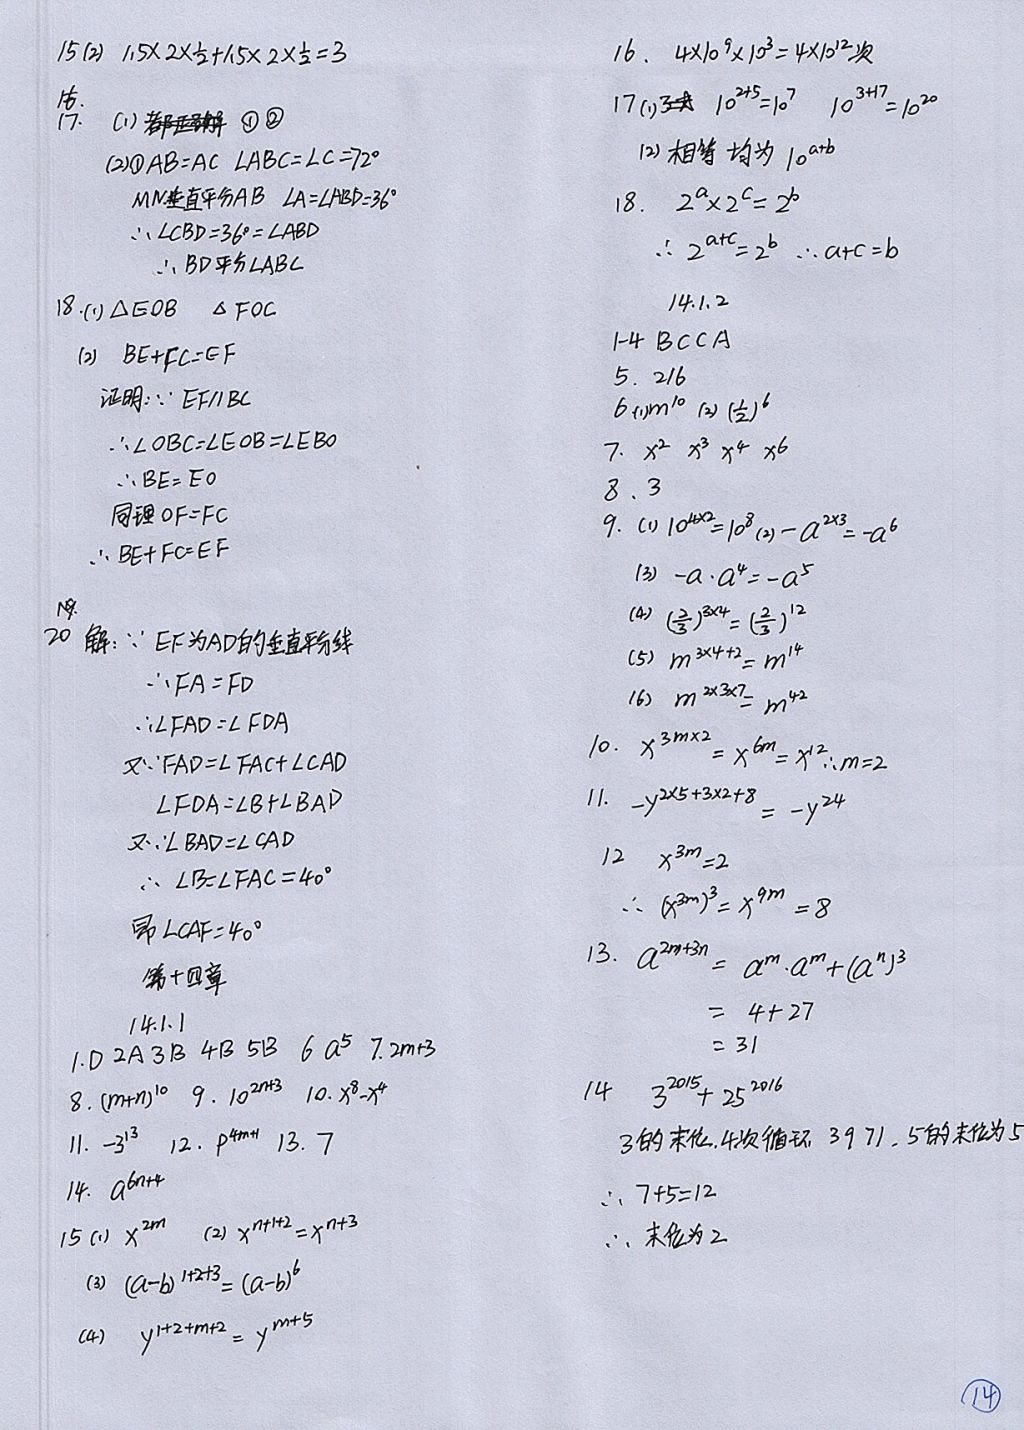 15(2) 1.5×2×½+1.5×2×½=3
16.
17. (1) ①②
(2)①AB=AC ∠ABC=∠C=72°
MN垂直平分AB ∠A=∠ABD=36°
∴∠CBD=36°=∠ABD
∴BD平分∠ABC
18.(1)△EOB △FOC
(2) BE+FC=EF
证明:∵EF//BC
∴∠OBC=∠EOB=∠EBO
∴BE=EO
同理OF=FC
∴BE+FC=EF
19.
20 解:∵EF为AD的垂直平分线
∴FA=FD
∴∠FAD=∠FDA
又∵FAD=∠FAC+∠CAD
∠FDA=∠B+∠BAD
又∵∠BAD=∠CAD
∴∠B=∠FAC=40°
即∠CAF=40°
第十四章
14.1.1
1.D 2A 3B 4B 5B 6 a⁵ 7.2m+3
8.(m+n)¹⁰ 9.10²ⁿ⁺³ 10.x⁸-x⁴
11.-3¹³ 12.p⁴ᵐ⁺¹ 13.7
14.a⁶ⁿ⁺⁴
15(1) x²ᵐ (2) xⁿ⁺¹⁺²=xⁿ⁺³
(3) (a-b)¹⁺²⁺³=(a-b)⁶
(4) y¹⁺²⁺ᵐ⁺²=yᵐ⁺⁵
16. 4×10⁹×10³=4×10¹²次
17(1) 10²⁺⁵=10⁷ 10³⁺¹⁷=10²⁰
(2)相等 均为10ᵃ⁺ᵇ
18. 2ᵃ×2ᶜ=2ᵇ
∴2ᵃ⁺ᶜ=2ᵇ ∴a+c=b
14.1.2
1-4 BCCA
5.216
6(1)m¹⁰ (2)(½)⁶
7. x² x³ x⁴ x⁶
8.3
9.(1)10⁴ˣ²=10⁸(2)-a²ˣ³=-a⁶
(3) -a·a⁴=-a⁵
(4) (⅔)³ˣ⁴=(⅔)¹²
(5) m³ˣ⁴⁺²=m¹⁴
(6) m²ˣ³ˣ⁷=m⁴²
10. x³ᵐˣ²=x⁶ᵐ=x¹²∴m=2
11. -y²ˣ⁵⁺³ˣ²⁺⁸=-y²⁴
12 x³ᵐ=2
∴(x³ᵐ)³=x⁹ᵐ=8
13. a²ᵐ⁺³ⁿ=aᵐ·aᵐ+(aⁿ)³
=4+27
=31
14 3²⁰¹⁵+25²⁰¹⁶
3的末位.4次循环3971.5的末位为5
∴7+5=12
∴末位为2
14